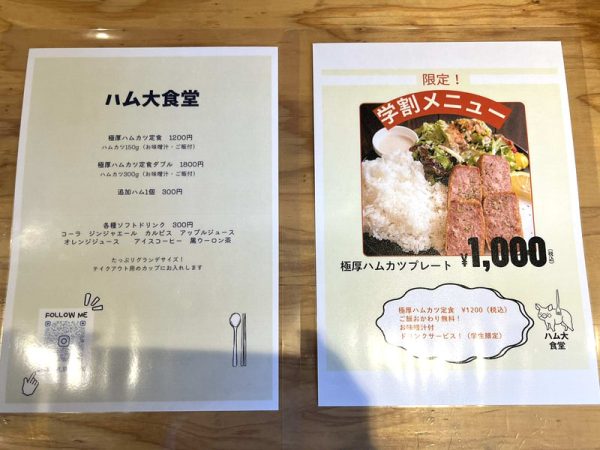 ハム大食堂
極厚ハムカツ定食 1200円
ハムカツ150g（お味噌汁・ご飯付）
極厚ハムカツ定食ダブル 1800円
ハムカツ300g（お味噌汁・ご飯付）
追加ハム1個 300円
各種ソフトドリンク 300円
コーラ ジンジャエール カルピス アップルジュース
オレンジジュース アイスコーヒー 黒ウーロン茶
たっぷりグランデサイズ！
テイクアウト用のカップにお入れします
FOLLOW ME
限定！
学割メニュー
極厚ハムカツプレート ¥1,000(税込)
極厚ハムカツ定食 ¥1200（税込）
ご飯おかわり無料！
お味噌汁付
ドリンクサービス！（学生限定）
ハム大
食堂